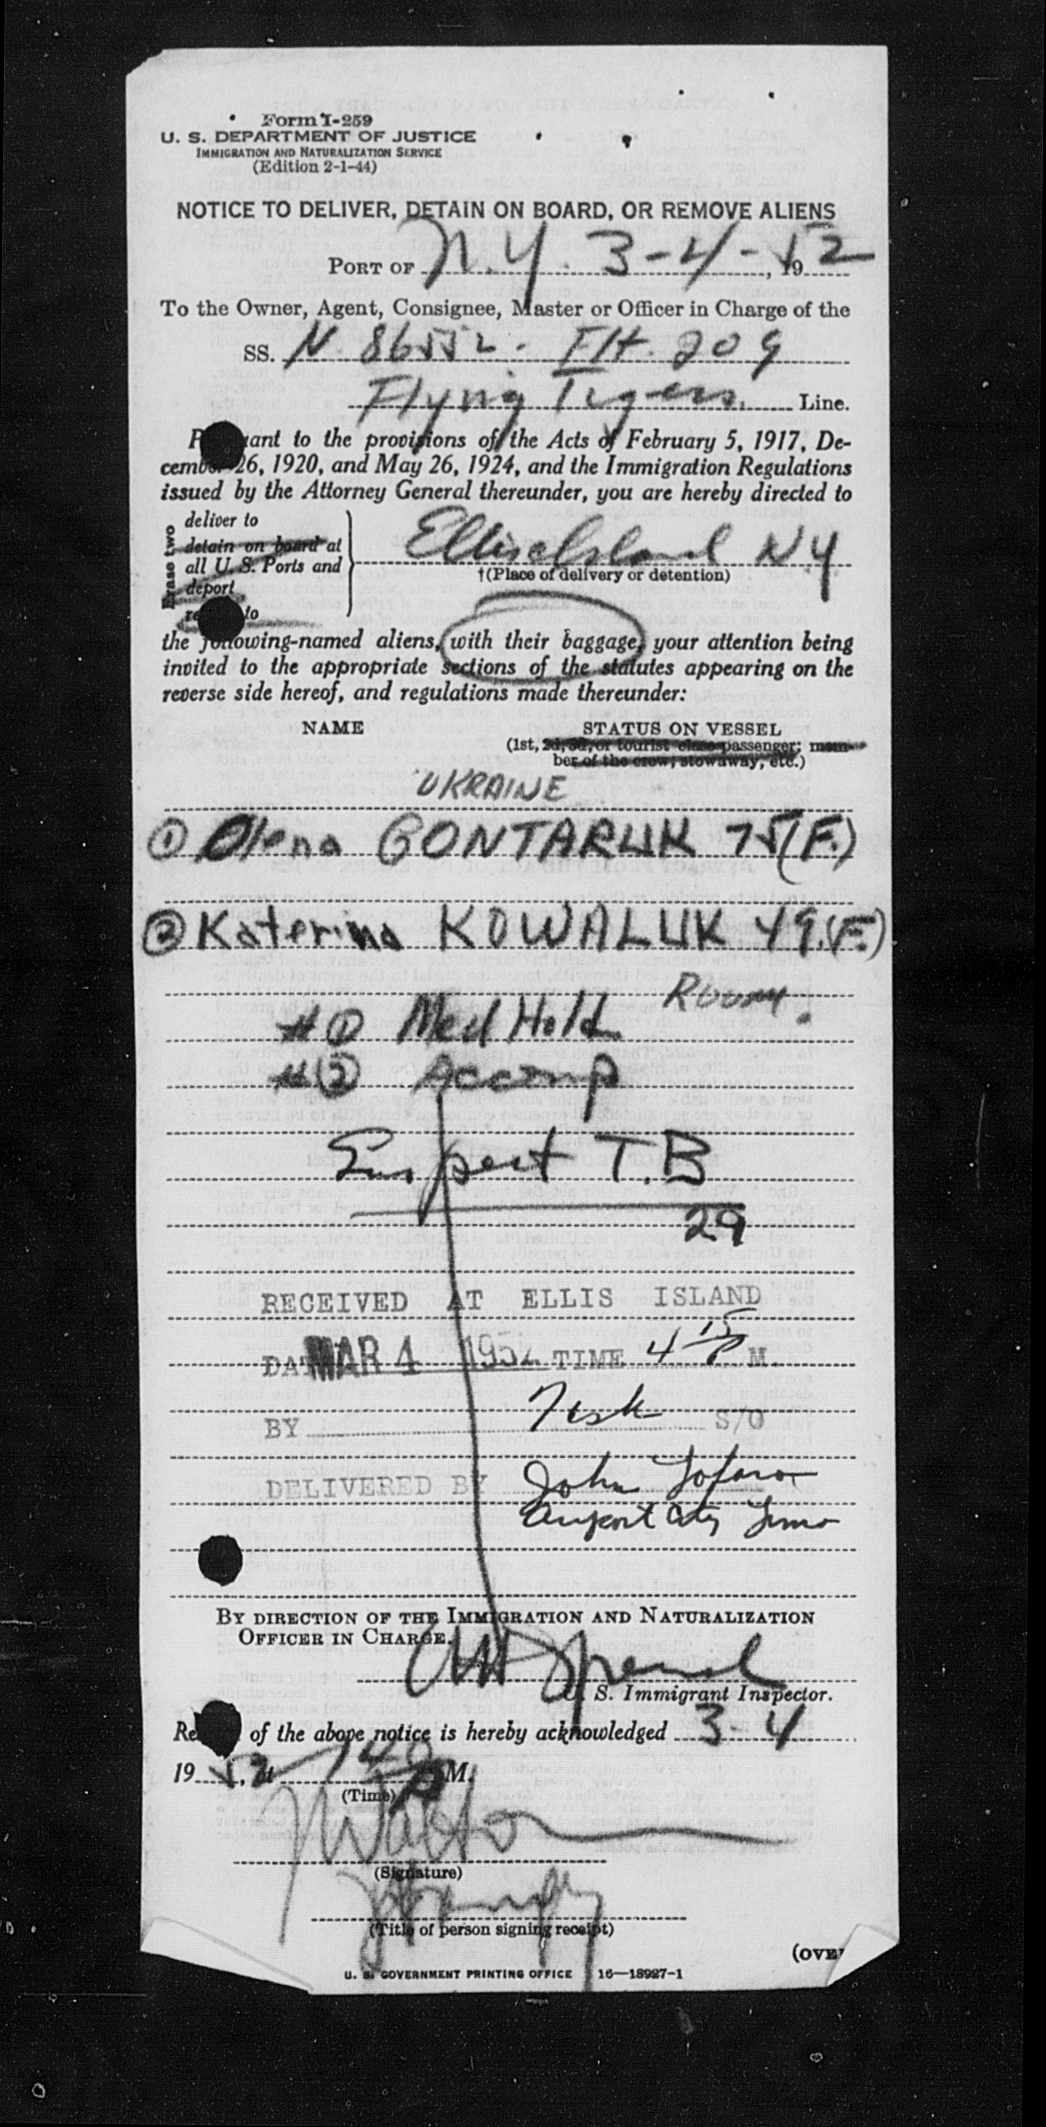 Form I-259
U. S. DEPARTMENT OF JUSTICE
IMMIGRATION AND NATURALIZATION SERVICE
(Edition 2-1-44)
NOTICE TO DELIVER, DETAIN ON BOARD, OR REMOVE ALIENS
PORT OF N.Y. 3-4-, 1952
To the Owner, Agent, Consignee, Master or Officer in Charge of the
SS. N. 86552. Flt. 209
Flying Tigers. Line.
P ant to the provisions of the Acts of February 5, 1917, De-
cember 26, 1920, and May 26, 1924, and the Immigration Regulations
issued by the Attorney General thereunder, you are hereby directed to
Erase two
deliver to
detain on board at
all U. S. Ports and
deport
to
Ellis Island N Y
†(Place of delivery or detention)
the following-named aliens, with their baggage, your attention being
invited to the appropriate sections of the statutes appearing on the
reverse side hereof, and regulations made thereunder:
NAME STATUS ON VESSEL
(1st, 2d, 3d, or tourist class passenger; mem-
ber of the crew; stowaway, etc.)
UKRAINE
① Olena GONTARUK 75 (F.)
② Katerina KOWALUK 49. (F.)
Room.
#① Med Hold
#② Accomp
Suspect T.B
29
RECEIVED AT ELLIS ISLAND
DATE MAR 4 1952 TIME 4 15 P M.
BY S/O
DELIVERED BY John
Airport City
BY DIRECTION OF THE IMMIGRATION AND NATURALIZATION
OFFICER IN CHARGE.
U. S. Immigrant Inspector.
Re of the above notice is hereby acknowledged 3-4
1952, at M.
(Time)
(Signature)
(Title of person signing receipt)
(OVE
U. S. GOVERNMENT PRINTING OFFICE 16—18927-1